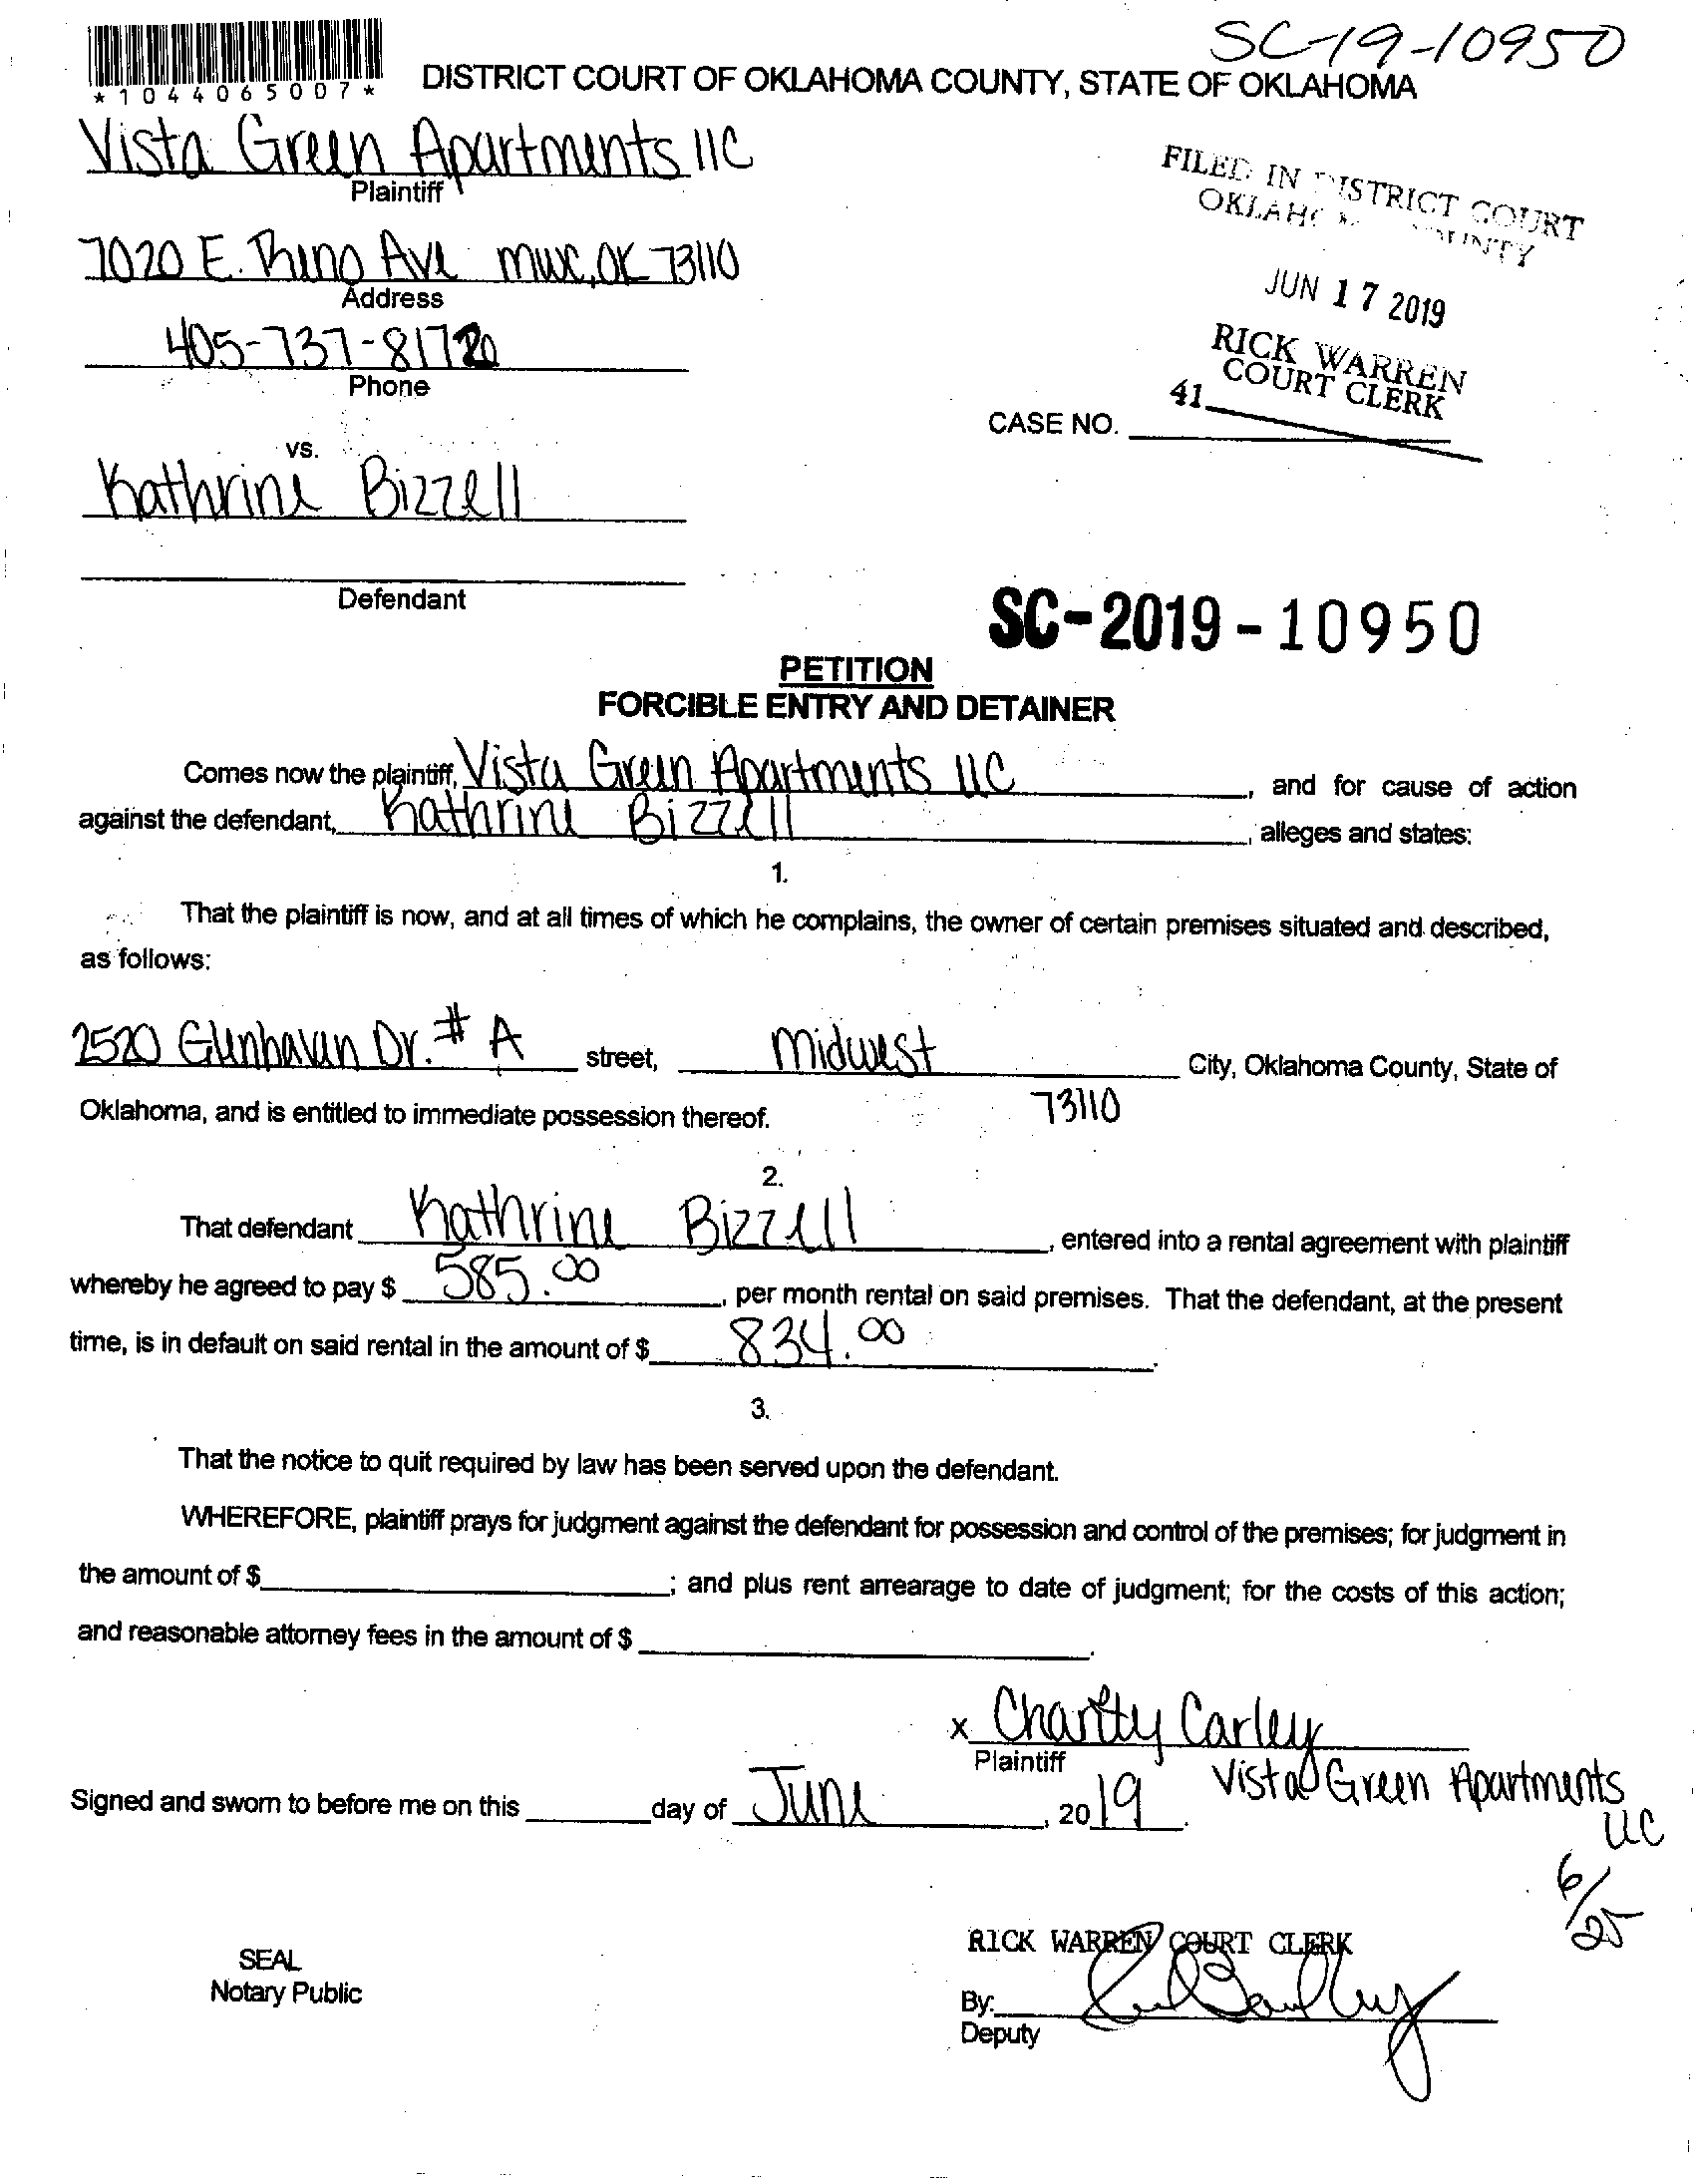 SC-19-10950
*1044065007*
DISTRICT COURT OF OKLAHOMA COUNTY, STATE OF OKLAHOMA
Vista Green Apartments llC
Plaintiff
FILED IN DISTRICT COURT
OKLAHOMA COUNTY
7020 E. Reno Ave MWC, OK 73110
Address
JUN 17 2019
405-737-8172
Phone
RICK WARREN
COURT CLERK
41
CASE NO.
vs.
Kathrine Bizzell
Defendant
SC-2019-10950
PETITION
FORCIBLE ENTRY AND DETAINER
Comes now the plaintiff, Vista Green Apartments LLC, and for cause of action
against the defendant, Kathrine Bizzell, alleges and states:
1.
That the plaintiff is now, and at all times of which he complains, the owner of certain premises situated and described,
as follows:
2520 Glenhaven Dr. # A street, Midwest City, Oklahoma County, State of
Oklahoma, and is entitled to immediate possession thereof. 73110
2.
That defendant Kathrine Bizzell, entered into a rental agreement with plaintiff
whereby he agreed to pay $ 585.00, per month rental on said premises. That the defendant, at the present
time, is in default on said rental in the amount of $ 834.00.
3.
That the notice to quit required by law has been served upon the defendant.
WHEREFORE, plaintiff prays for judgment against the defendant for possession and control of the premises; for judgment in
the amount of $ ; and plus rent arrearage to date of judgment; for the costs of this action;
and reasonable attorney fees in the amount of $ .
x Charity Carley
Plaintiff
Vista Green Apartments
LLC
Signed and sworn to before me on this day of June, 2019.
6/25
RICK WARREN COURT CLERK
SEAL
Notary Public
By:
Deputy